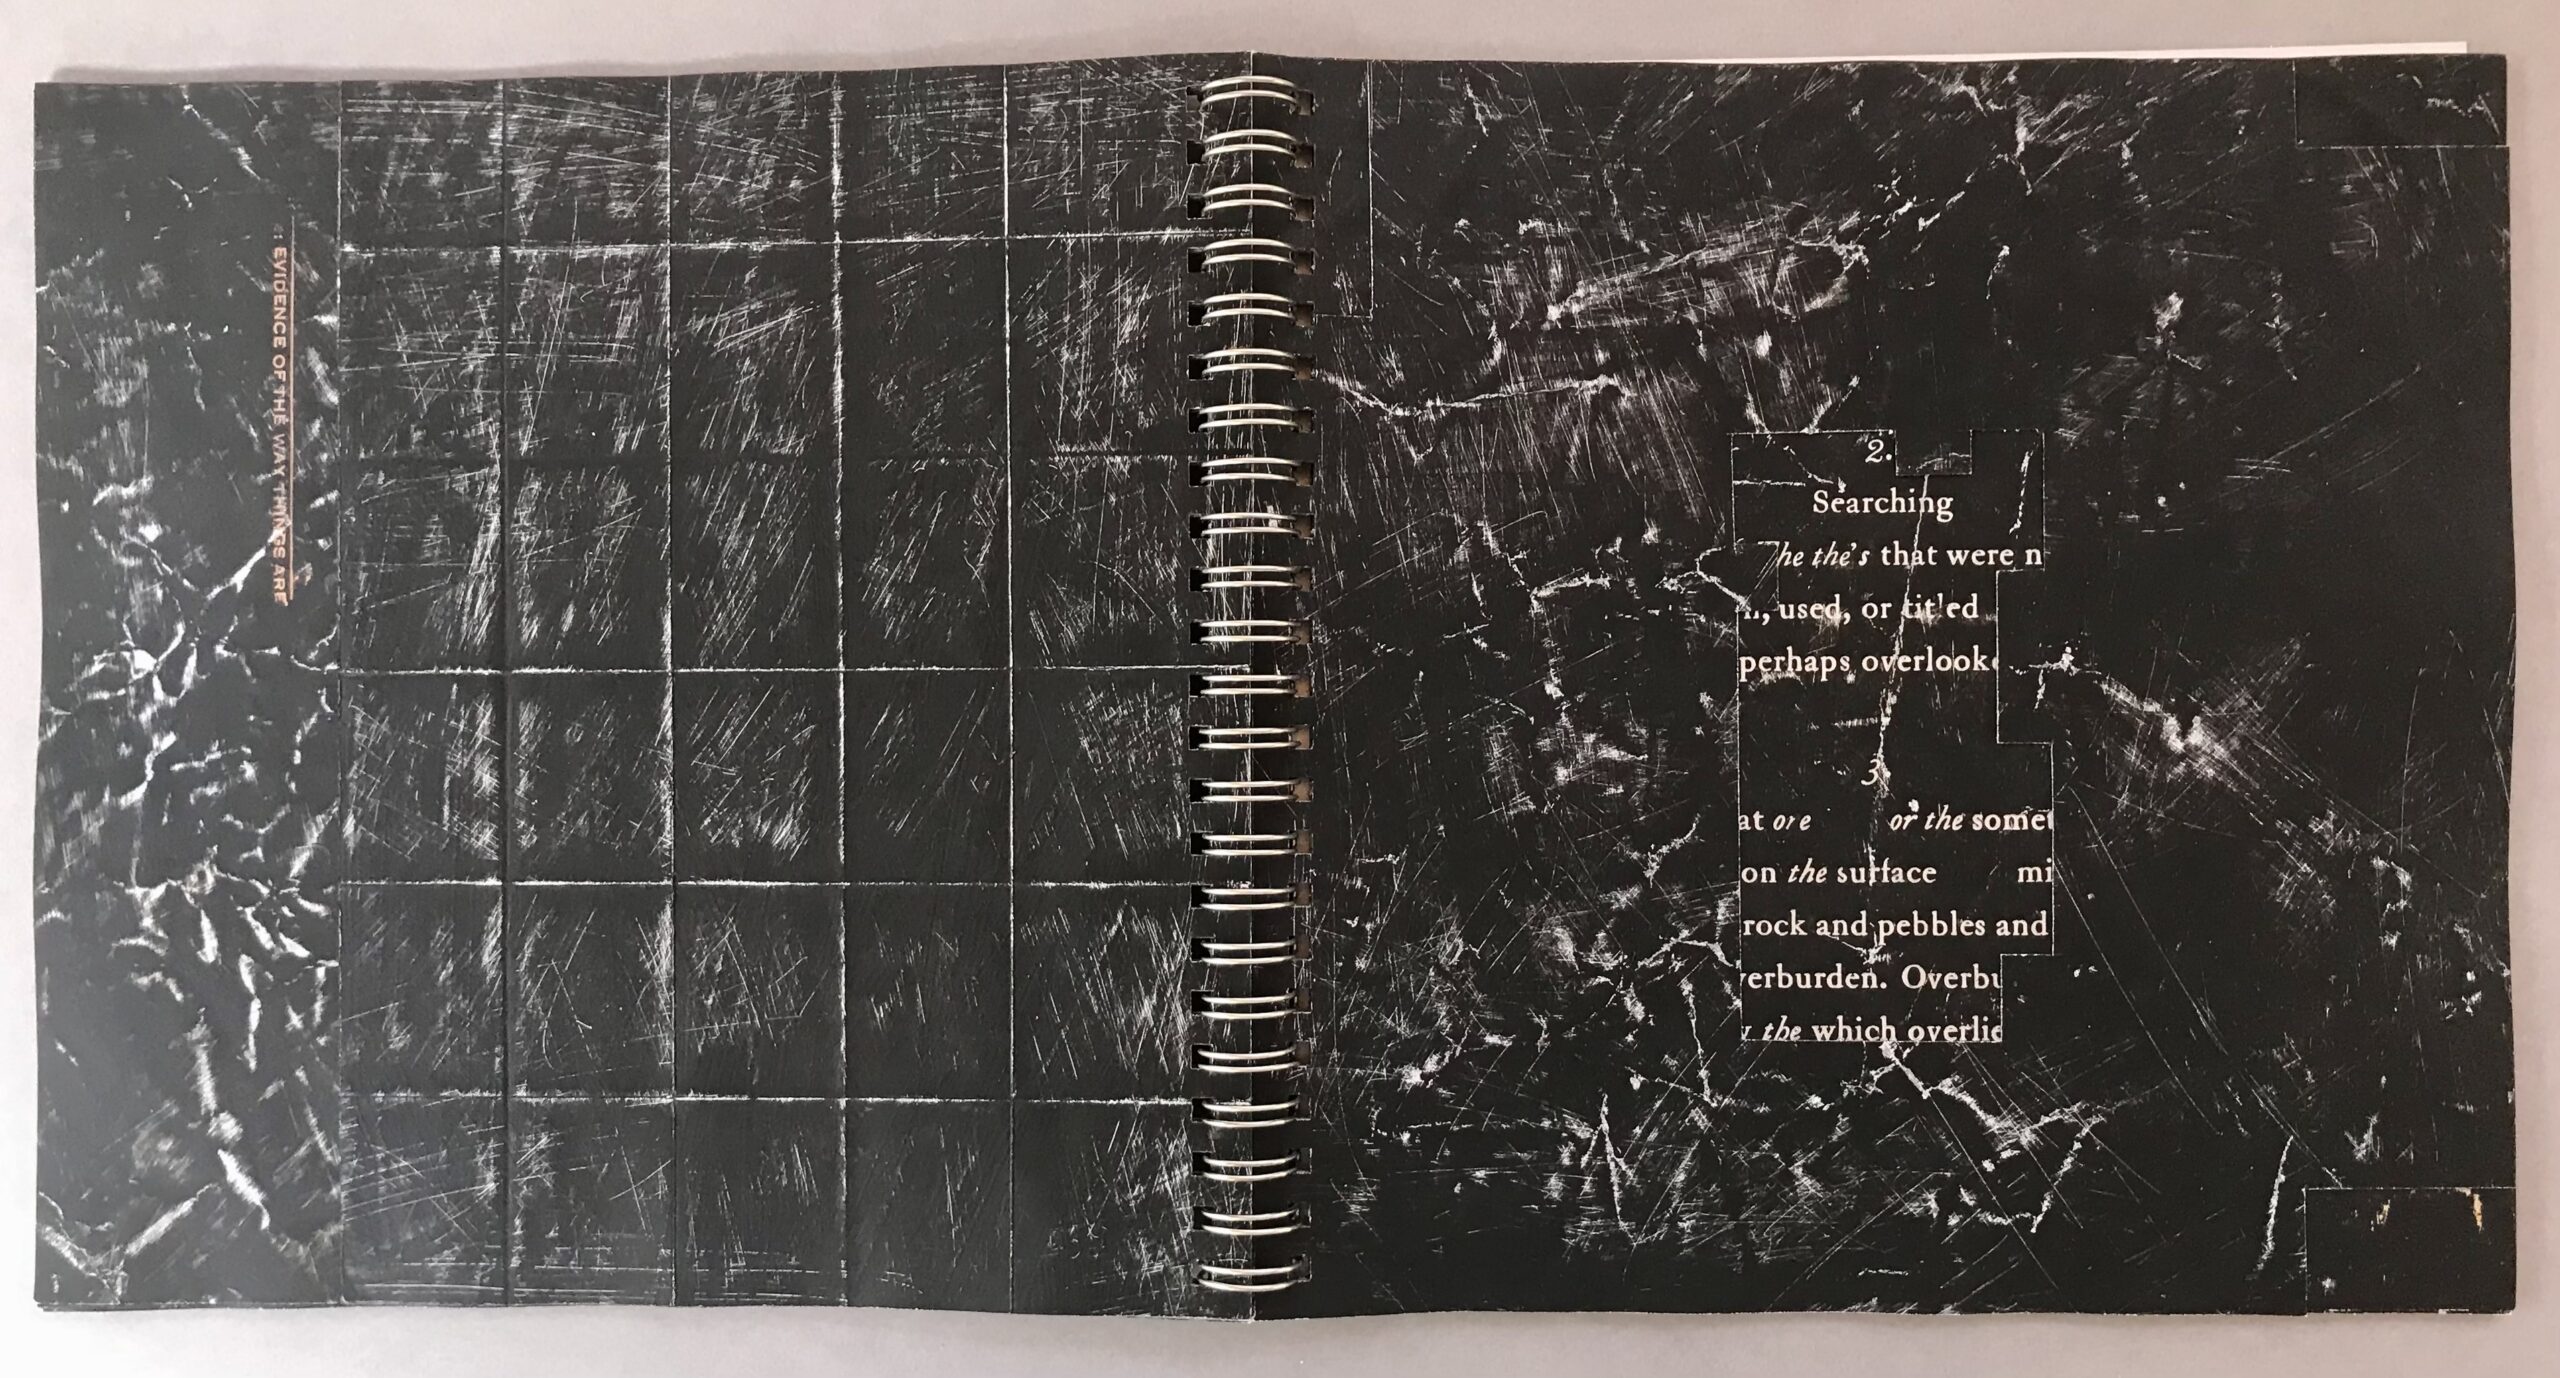 EVIDENCE OF THE WAY THINGS ARE
2.
Searching
he the's that were n
, used, or titled
perhaps overlook
3
at ore or the somet
on the surface mi
rock and pebbles and
erburden. Overbu
the which overlie